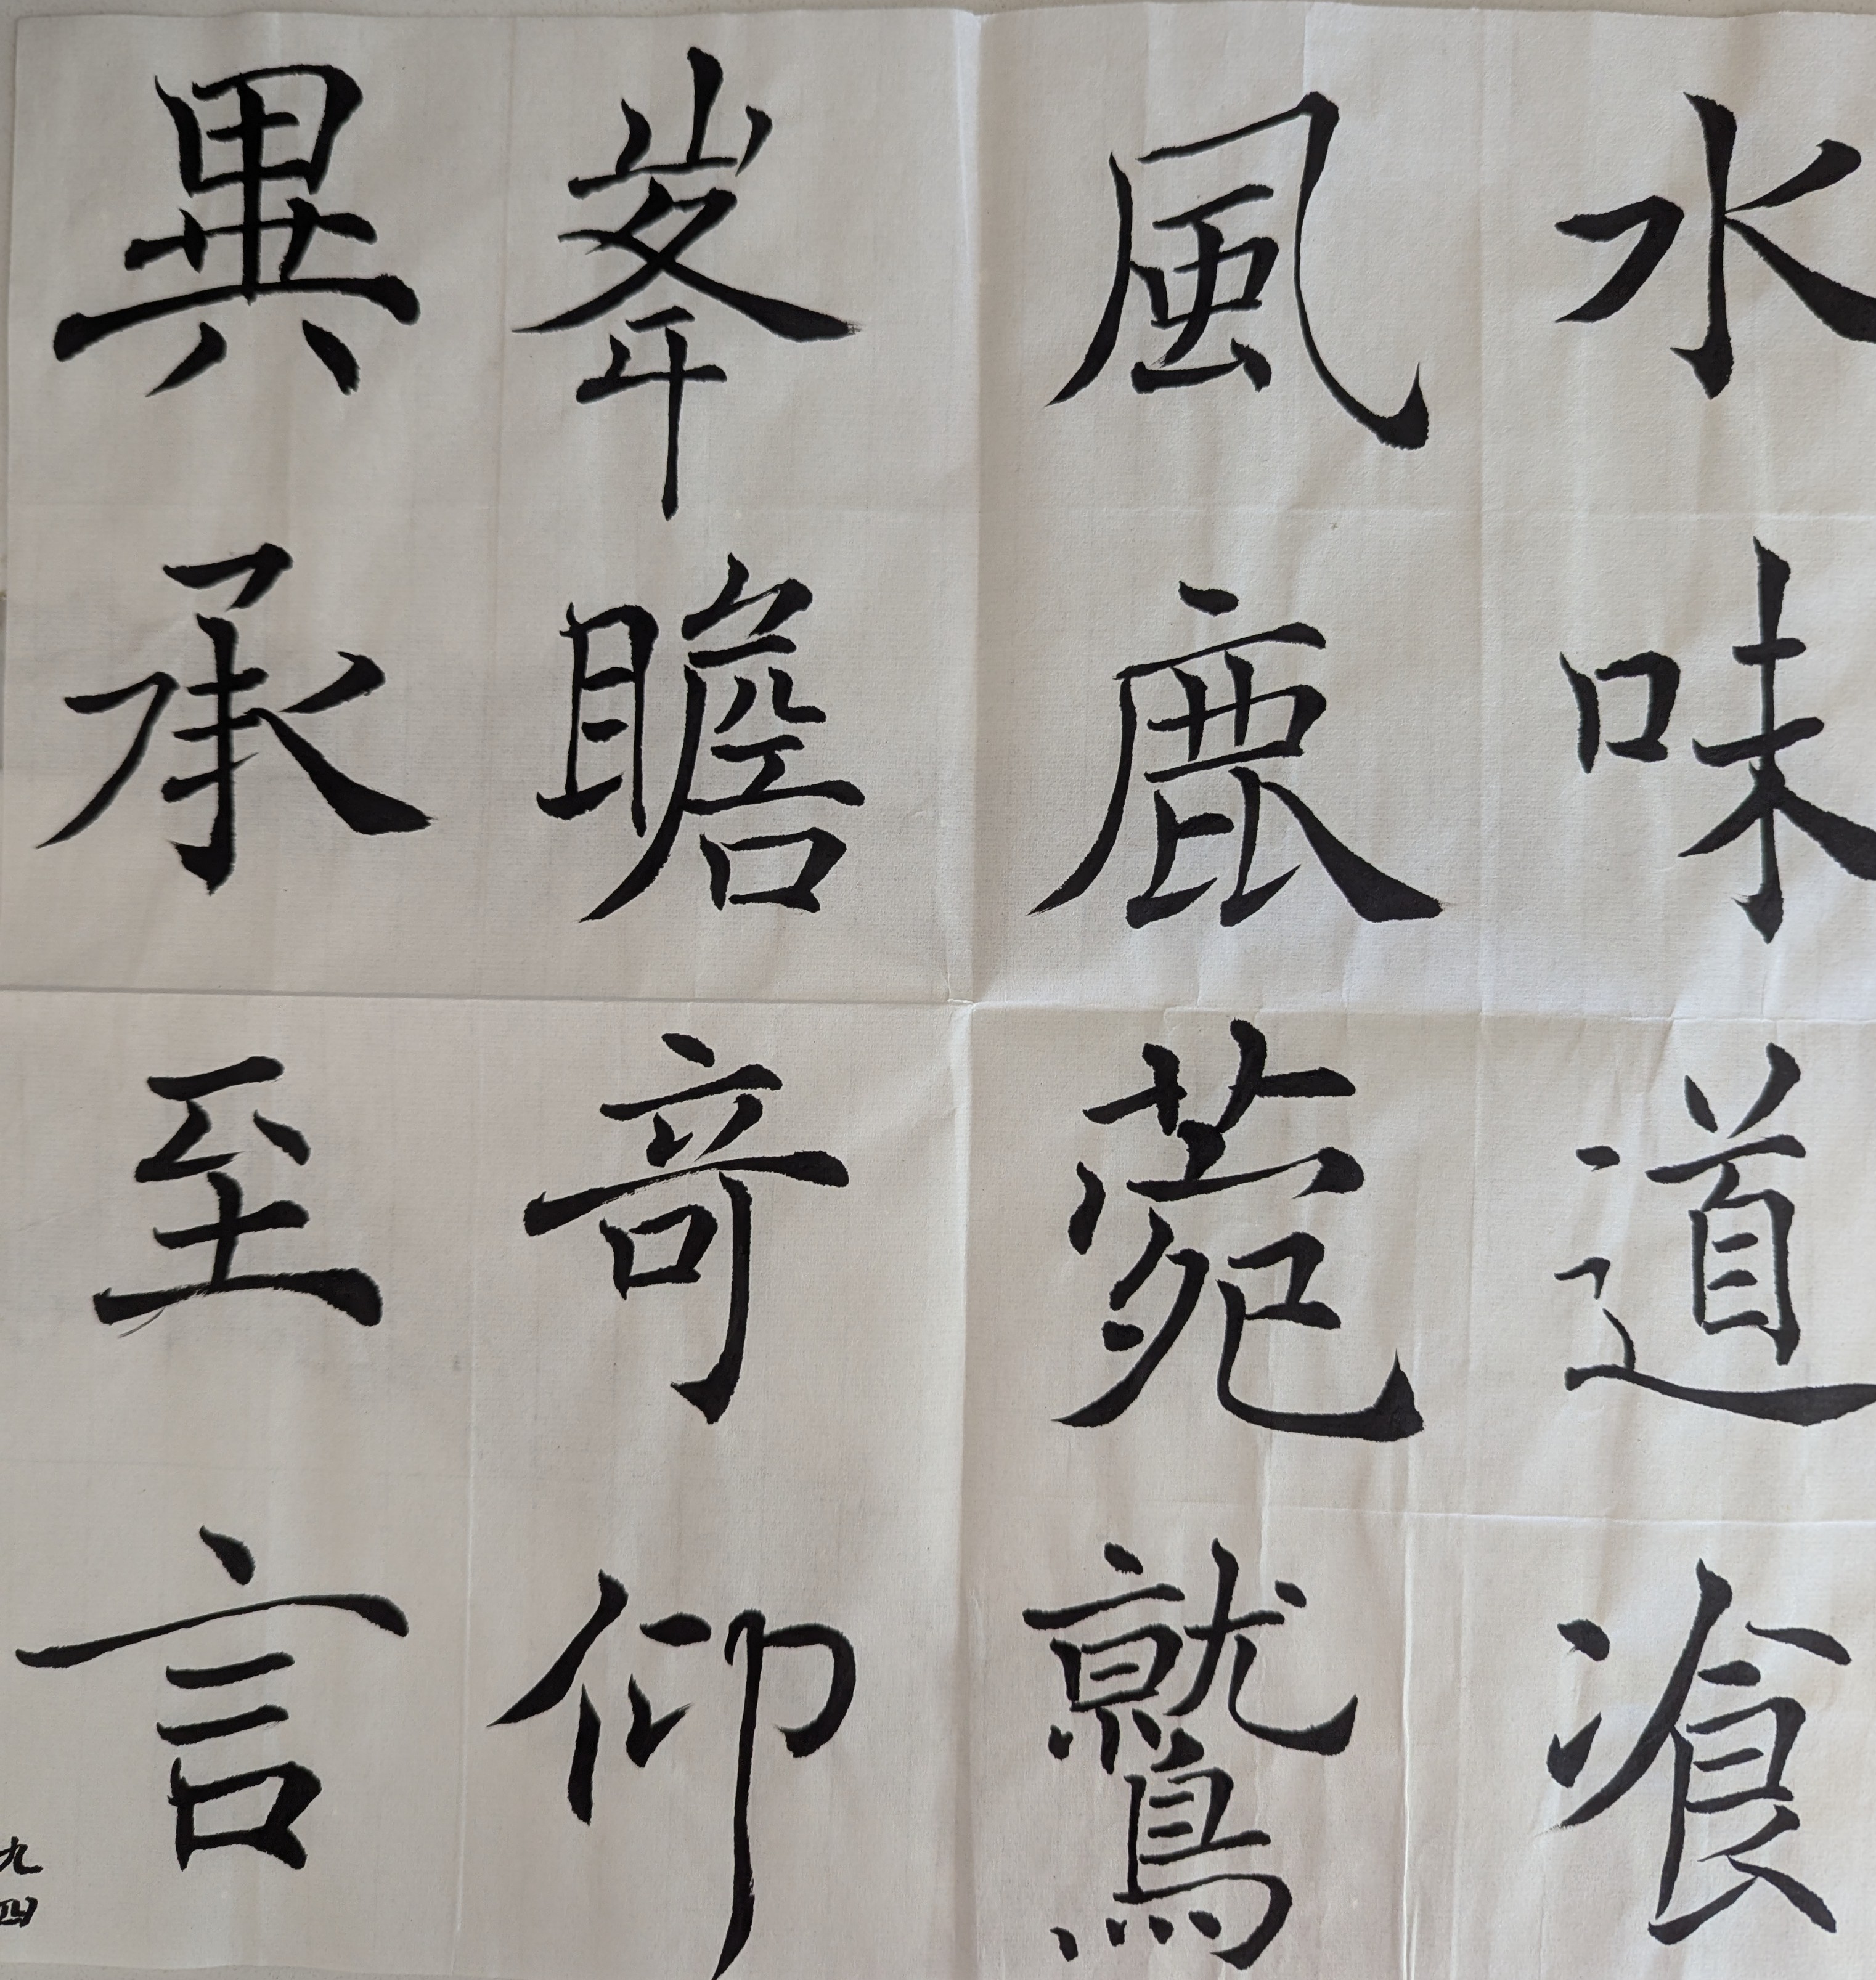 水味道飡
風鹿菀鷲
峯瞻竒仰
異承至言
九四